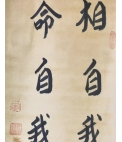 相自我
命自我